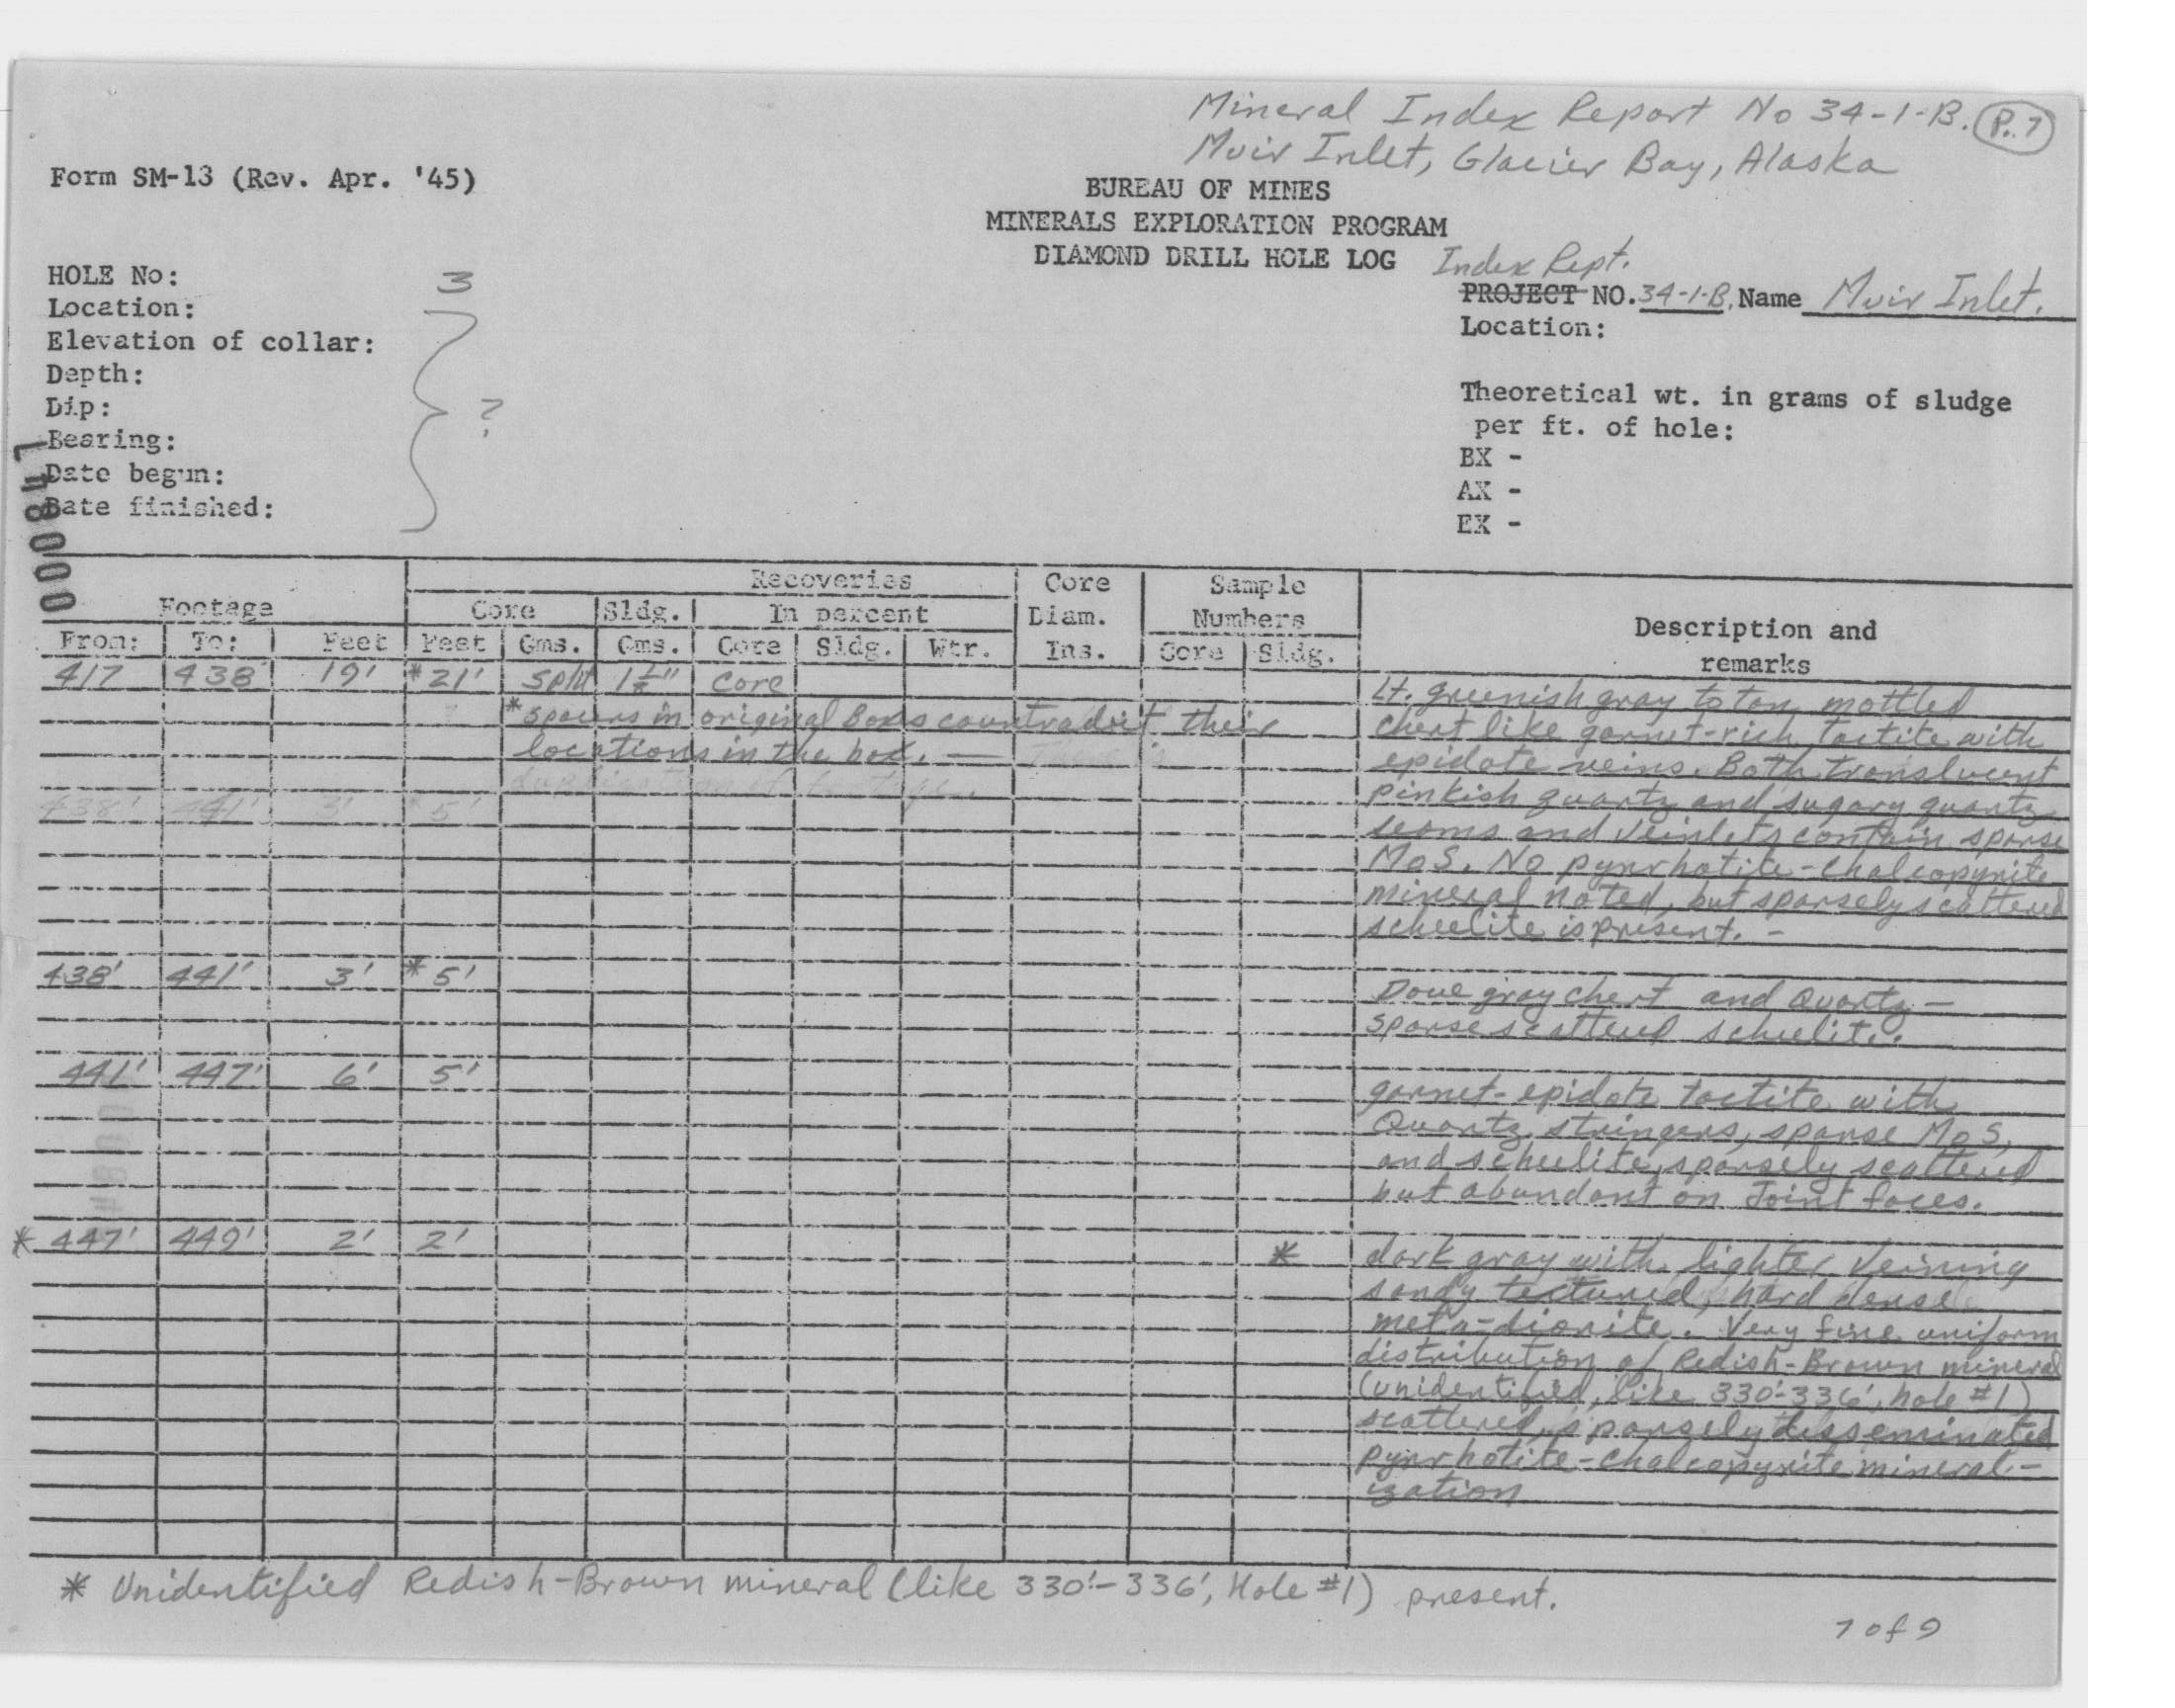 Mineral Index Report No 34-1-B. P. 7
Muir Inlet, Glacier Bay, Alaska
Form SM-13 (Rev. Apr. '45)
BUREAU OF MINES
MINERALS EXPLORATION PROGRAM
DIAMOND DRILL HOLE LOG
Index Rept.
HOLE No: 3
PROJECT NO. 34-1-B, Name Muir Inlet.
Location:
Location:
Elevation of collar:
Depth:
Dip: ?
Bearing:
Date begun:
Date finished:
Theoretical wt. in grams of sludge
per ft. of hole:
BX -
AX -
EX -
000841
Recoveries Core Sample
Footage Core Sldg. In percent Diam. Numbers Description and
From: To: Feet Feet Gms. Gms. Core Sldg. Wtr. Ins. Core Sldg. remarks
417 438' 19' *21' split 1 1/2" core
*spacers in original Boxes countradict their
locations in the box. —
duplication of footage.
438' 441' 3' *5'
Lt. greenish gray to tan mottled
chert like garnet-rich tactite with
epidote veins. Both translucent
pinkish quartz and sugary quartz
seams and veinlets contain sparse
MoS. No pynrhotite-chalcopyrite
mineral noted, but sparsely scattered
scheelite is present. -
438' 441' 3' *5'
Dove gray chert and Quartz -
sparse scattered scheelite.
441' 447' 6' 5'
garnet-epidote tactite with
Quartz stringers, sparse MoS,
and scheelite, sparsely scattered
but abundant on Joint faces.
* 447' 449' 2' 2' *
dark gray with lighter veining
sandy textured, hard dense
meta-diorite. Very fine uniform
distribution of Redish-Brown mineral
(unidentified, like 330'-336', hole #1)
scattered, sparsely disseminated
pynrhotite-chalcopyrite mineral-
ization
* Unidentified Redish-Brown mineral (like 330'-336', Hole #1) present.
7 of 9